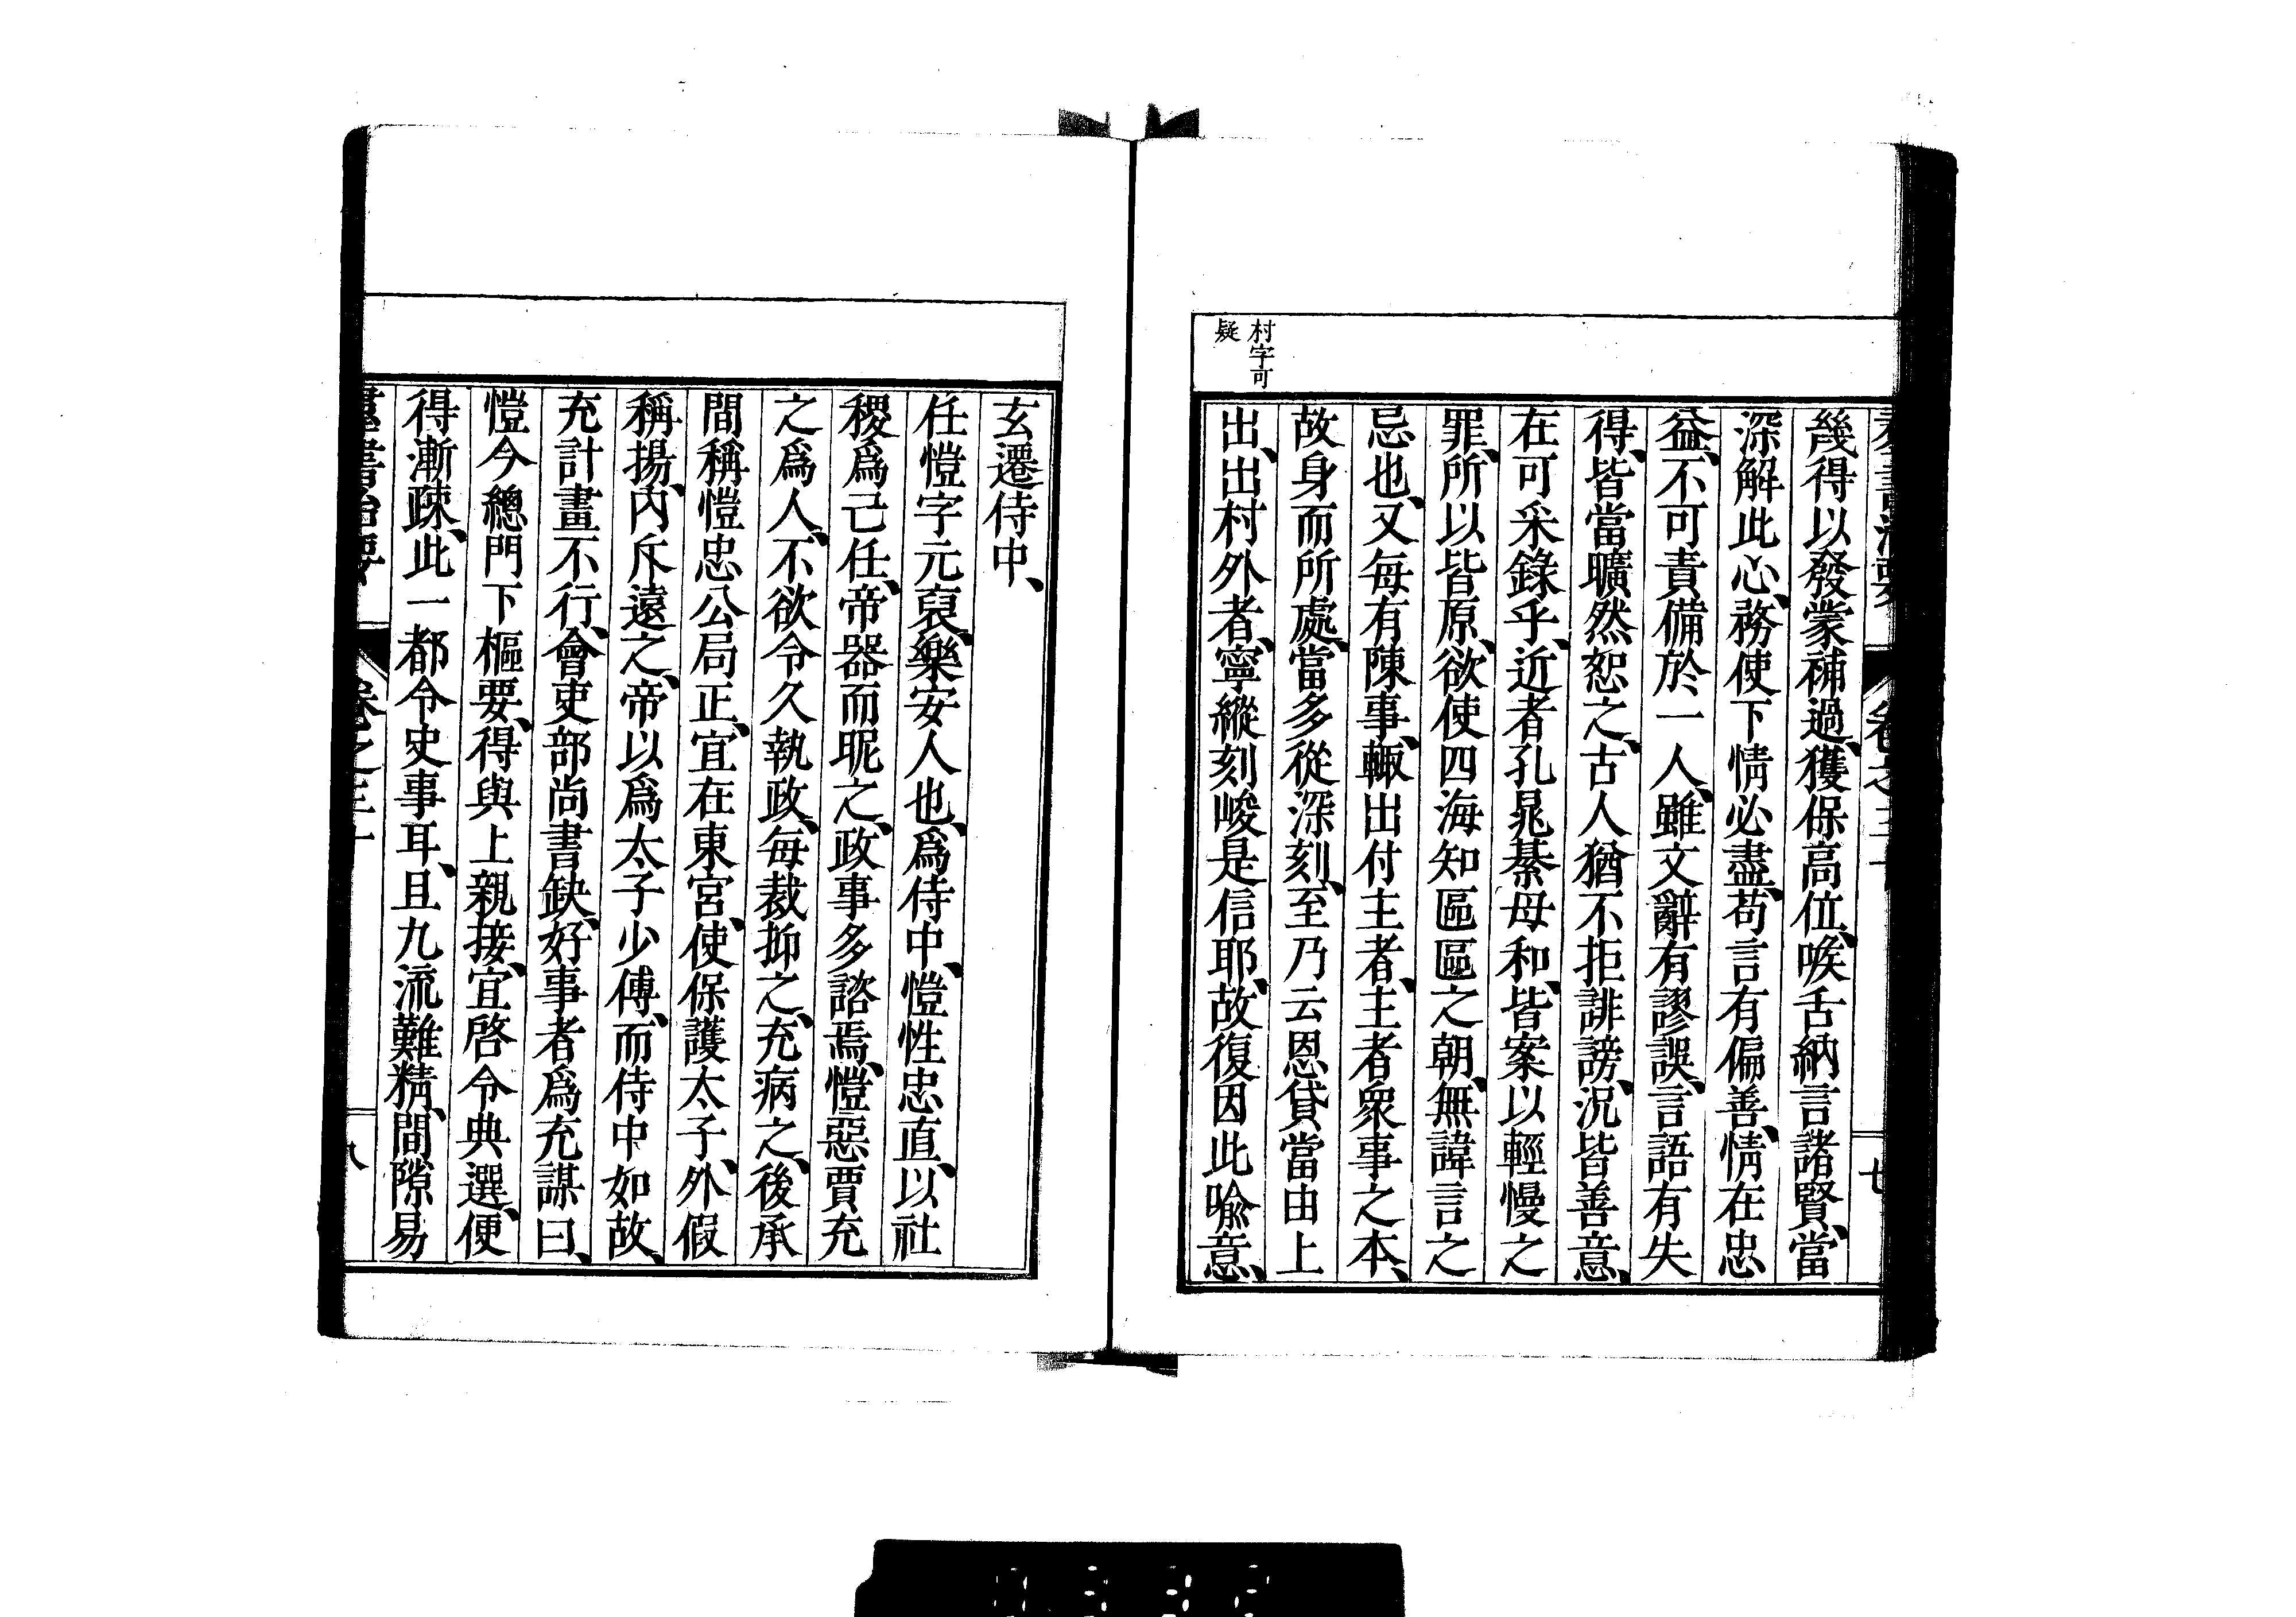 幾得以發蒙補過、獲保高位、喉舌納言諸賢、當
深解此心、務使下情必盡、苟言有偏善、情在忠
益、不可責備於一人、雖文辭有謬誤、言語有失
得、皆當曠然恕之、古人猶不拒誹謗、況皆善意、
在可采錄乎、近者孔晁綦母和、皆案以輕慢之
罪、所以皆原、欲使四海知區區之朝、無諱言之
忌也、又每有陳事、輙出付主者、主者衆事之本、
故身而所處、當多從深刻、至乃云恩貸當由上
出、出村外者、寧縱刻峻是信耶、故復因此喩意、
村字可
疑
玄遷侍中、
任愷字元裒、樂安人也、爲侍中、愷性忠直、以社
稷爲己任、帝器而昵之、政事多諮焉、愷惡賈充
之爲人、不欲令久執政、每裁抑之、充病之、後承
間稱愷忠公局正、宜在東宮、使保護太子、外假
稱揚、內斥遠之、帝以爲太子少傅、而侍中如故、
充計畫不行、會吏部尚書缺、好事者爲充謀曰、
愷今總門下樞要、得與上親接、宜啓令典選、便
得漸疎、此一都令史事耳、且九流難精、間隙易